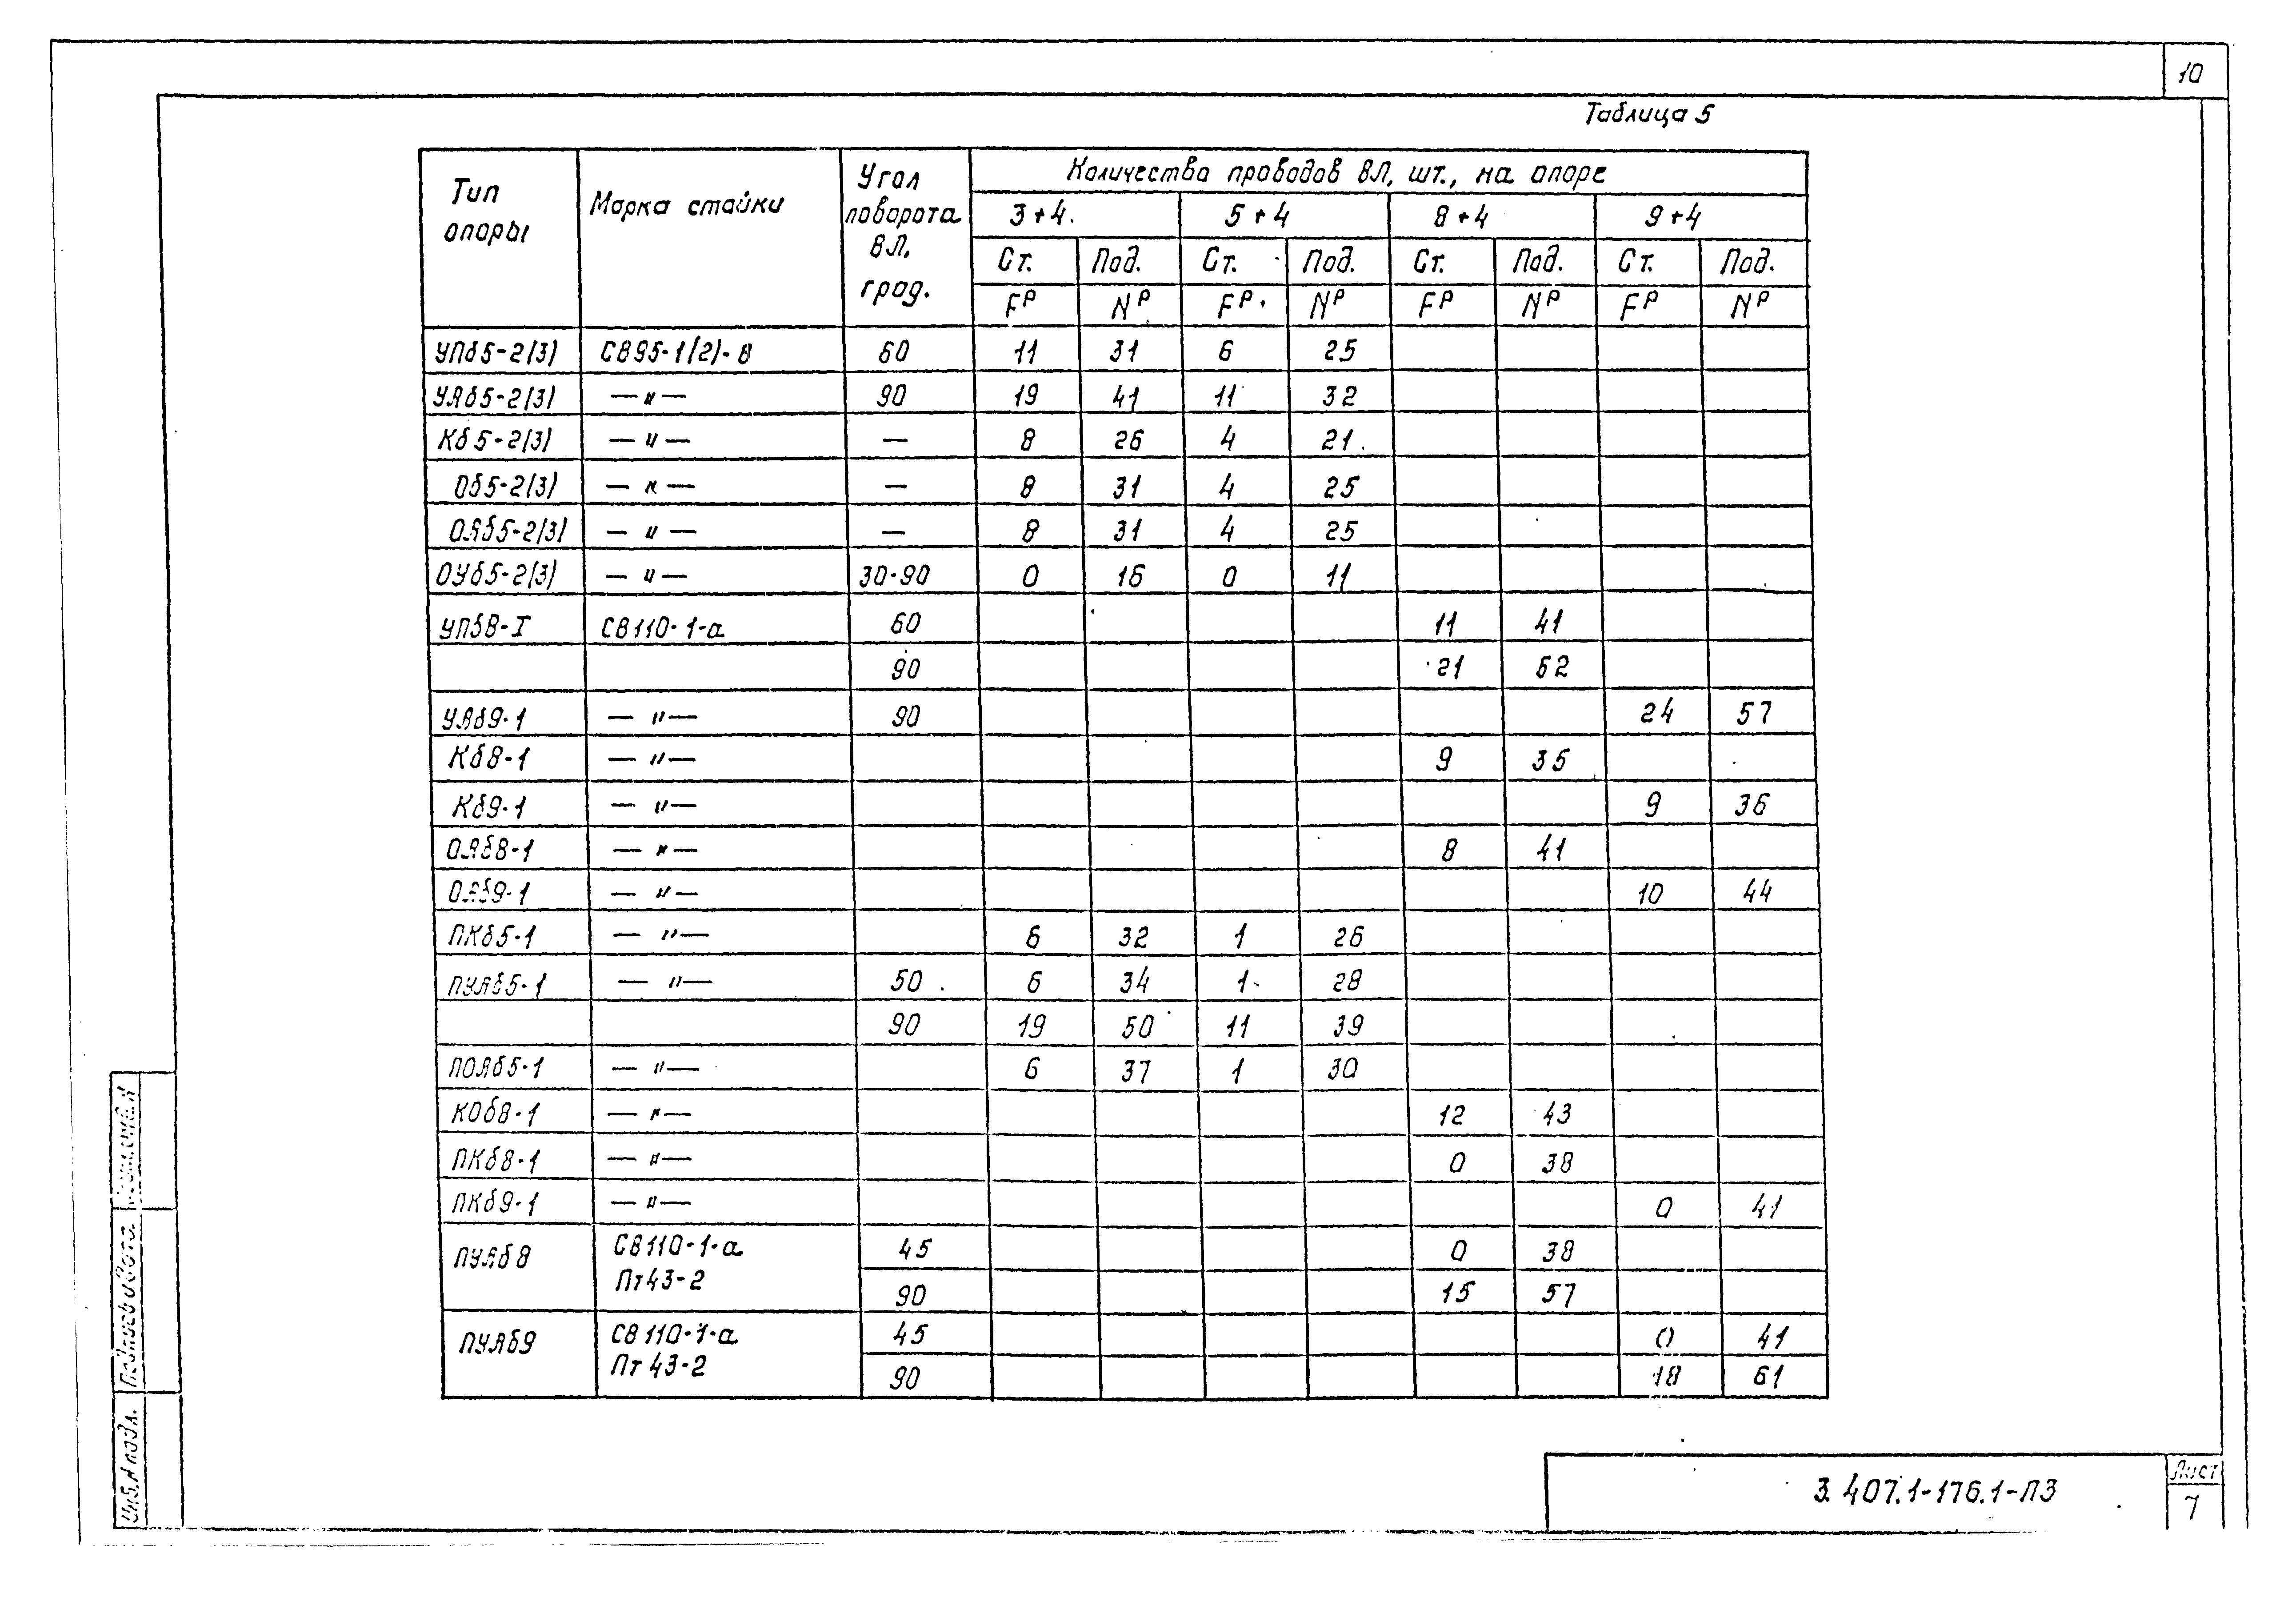 10
Таблица 5
Тип опоры Марка стойки Угол поворота ВЛ, град. Количество проводов ВЛ, шт., на опоре
3+4 5+4 8+4 9+4
Ст. Под. Ст. Под. Ст. Под. Ст. Под.
Fᴾ Nᴾ Fᴾ Nᴾ Fᴾ Nᴾ Fᴾ Nᴾ
УПб5-2(3) СВ95-1(2)-в 60 11 31 6 25
УАб5-2(3) —〃— 90 19 41 11 32
Кб5-2(3) —〃— — 8 26 4 21
Об5-2(3) —〃— — 8 31 4 25
ОАб5-2(3) —〃— — 8 31 4 25
ОУб5-2(3) —〃— 30-90 0 16 0 11
УПб8-I СВ110-1-а 60 11 41
90 21 62
УАб9-1 —〃— 90 24 57
Кб8-1 —〃— 9 35
Кб9-1 —〃— 9 36
ОАб8-1 —〃— 8 41
ОАб9-1 —〃— 10 44
ПКб5-1 —〃— 6 32 1 26
ПУАб5-1 —〃— 50 6 34 1 28
90 19 50 11 39
ПОАб5-1 —〃— 6 37 1 30
КОб8-1 —〃— 12 43
ПКб8-1 —〃— 0 38
ПКб9-1 —〃— 0 41
ПУАб8 СВ110-1-а 45 0 38
Пт43-2 90 15 57
ПУАб9 СВ110-1-а 45 0 41
Пт43-2 90 18 61
Инв.N подл. Подпись и дата
3.407.1-176.1-ПЗ
Лист
7